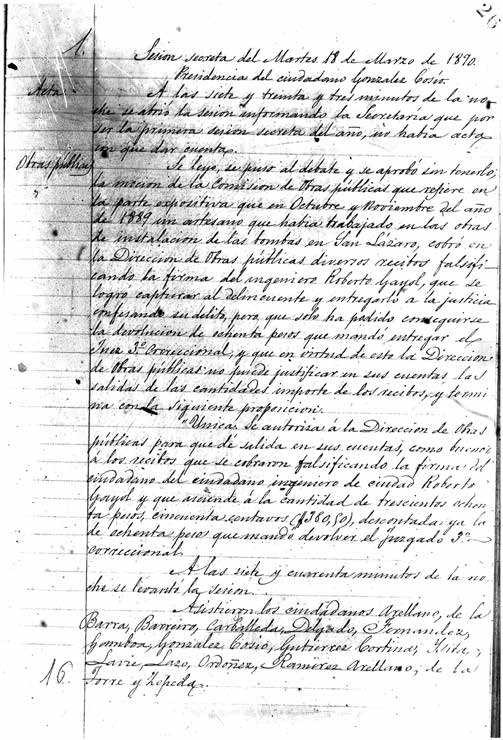 26
1.
Sesion secreta del Martes 18 de Marzo de 1890.
Presidencia del ciudadano Gonzalez Cosío.
Acta
A las siete y treinta y tres minutos de la no-
che se abrió la sesion informando la Secretaria que por
ser la primera sesion secreta del año, no habia acta
con que dar cuenta.
Obras públicas
Se leyó, se puso al debate y se aprobó sin tenerlo,
la mocion de la Comision de Obras públicas que refiere en
la parte expositiva que en Octubre y Noviembre del año
de 1889 un artesano que habia trabajado en las obras
de instalacion de las bombas en San Lázaro, cobró en
la Direccion de Obras públicas diversos recibos falsifi-
cando la firma del ingeniero Roberto Gayol, que se
logró capturar al delincuente y entregarlo a la justicia
confesando su delito, pero, que solo ha podido conseguirse
la devolucion de ochenta pesos que mandó entregar el
Juez 3º Correccional, y que en virtud de esto la Direccion
de Obras públicas no puede justificar en sus cuentas las
salidas de las cantidades importe de los recibos, y termi
na con la siguiente proposicion.
"Unica. Se autoriza á la Direccion de Obras
públicas para que dé salida en sus cuentas, como buenos
á los recibos que se cobraron falsificando la firma del
ciudadano del ciudadano ingeniero de ciudad Roberto
Gayol y que asciende á la cantidad de trescientos ochen-
ta pesos, cincuenta centavos ($380,50), descontada ya la
de ochenta pesos que mandó devolver el juzgado 3º
correccional.
A las siete y cuarenta minutos de la no-
che se levantó la sesion.
Asistieron los ciudadanos Arellano, de la
Barra, Barreiro, Carballeda, Delgado, Fernandez,
Gamboa, Gonzalez Cosío, Gutierrez Cortina,
Lavie, Lazo, Ordoñez, Ramirez Arellano, de la
16.
Torre y Zepeda.